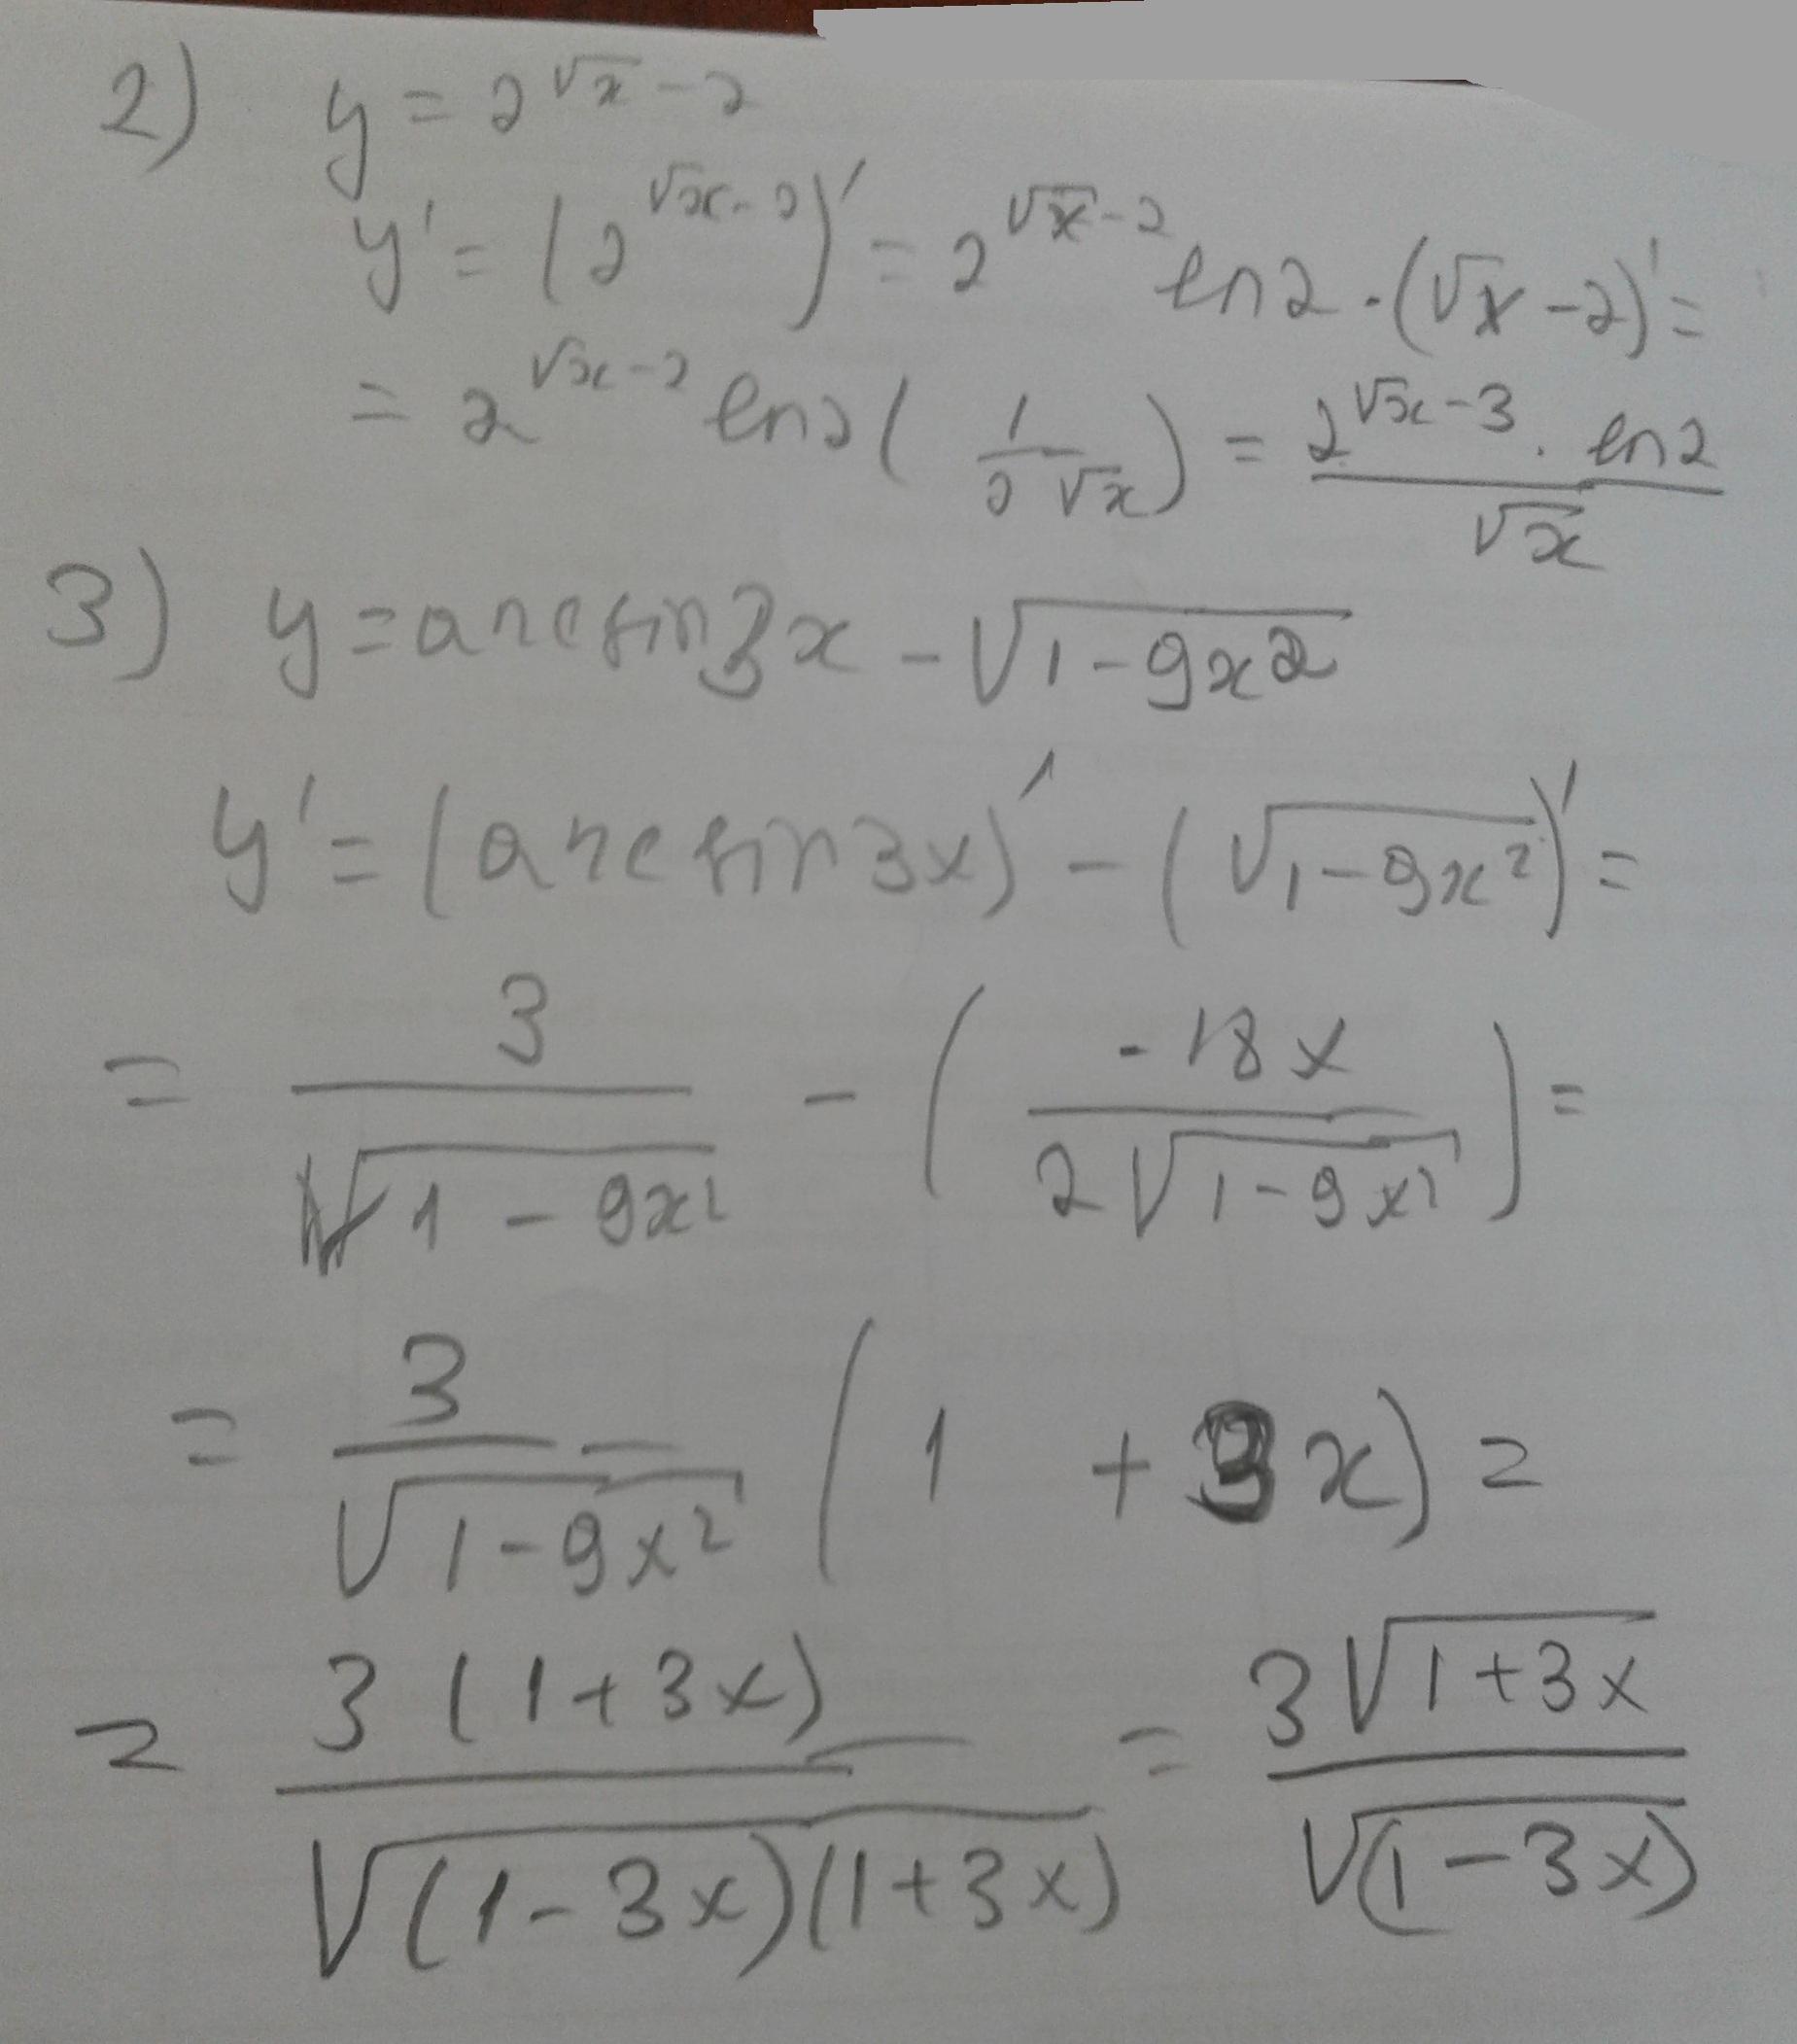 2) y = 2^(√x - 2)
y' = (2^(√x - 2))' = 2^(√x - 2) ln2 · (√x - 2)' =
= 2^(√x - 2) ln2 (1/(2√x)) = (2^(√x - 3) · ln2)/√x
3) y = arcsin3x - √(1 - 9x²)
y' = (arcsin3x)' - (√(1 - 9x²))' =
= 3/√(1 - 9x²) - (-18x/(2√(1 - 9x²))) =
= 3/√(1 - 9x²) (1 + 3x) =
= 3(1 + 3x)/√((1 - 3x)(1 + 3x)) = 3√(1 + 3x)/√(1 - 3x)